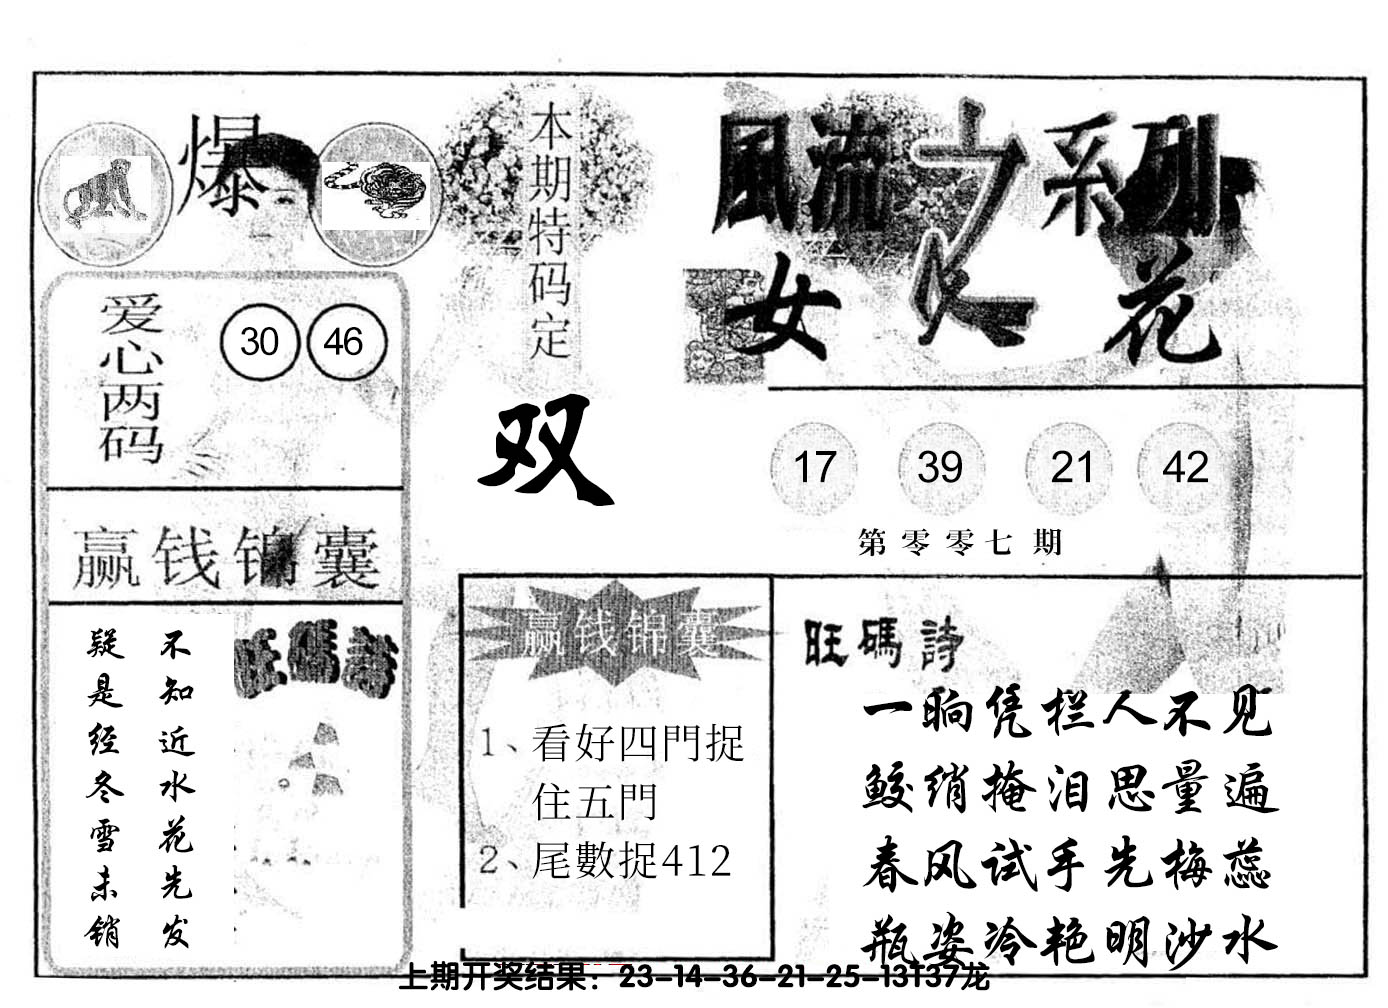 爆
爱心两码
30 46
赢钱锦囊
不知近水花先发
疑是经冬雪未销
旺碼詩
本期特码定
双
風流之系列
女人花
17 39 21 42
第零零七期
赢钱锦囊
1、看好四門捉
住五門
2、尾數捉412
旺碼詩
一晌凭栏人不见
鲛绡掩泪思量遍
春风试手先梅蕊
瓶姿冷艳明沙水
上期开奖结果：23-14-36-21-25-13T37龙